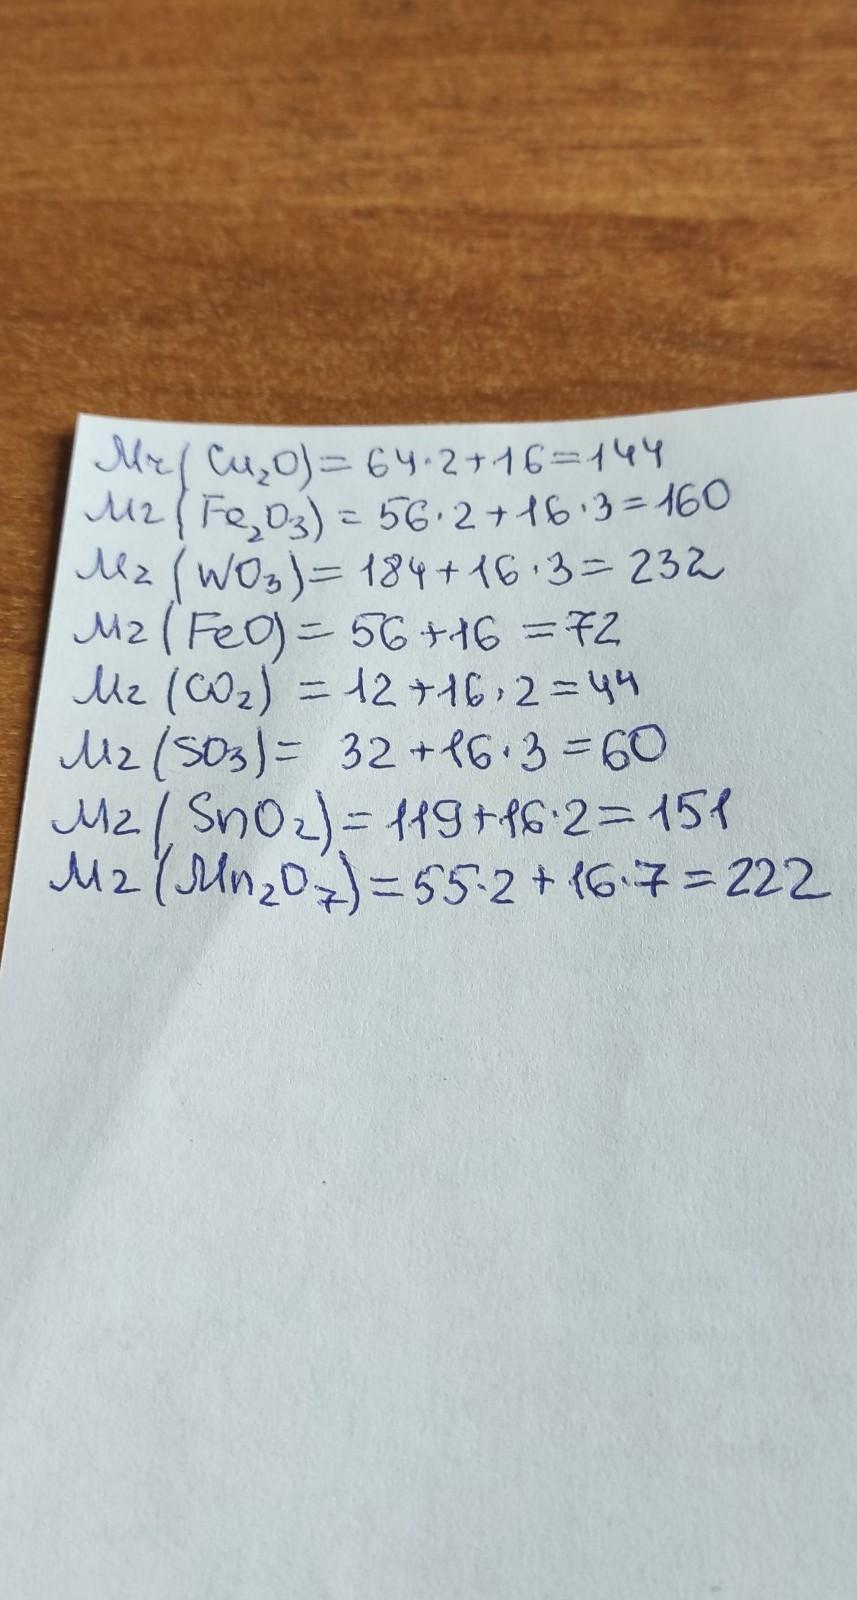 Mr(Cu₂O)=64·2+16=144
Mr(Fe₂O₃)=56·2+16·3=160
Mr(WO₃)=184+16·3=232
Mr(FeO)=56+16=72
Mr(CO₂)=12+16·2=44
Mr(SO₃)=32+16·3=60
Mr(SnO₂)=119+16·2=151
Mr(Mn₂O₇)=55·2+16·7=222